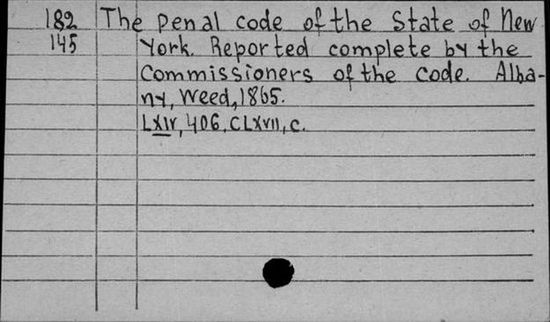 182 The penal code of the State of New
145 York. Reported complete by the
Commissioners of the code. Alba-
ny, Weed, 1865.
LXIV, 406, CLXVII, c.